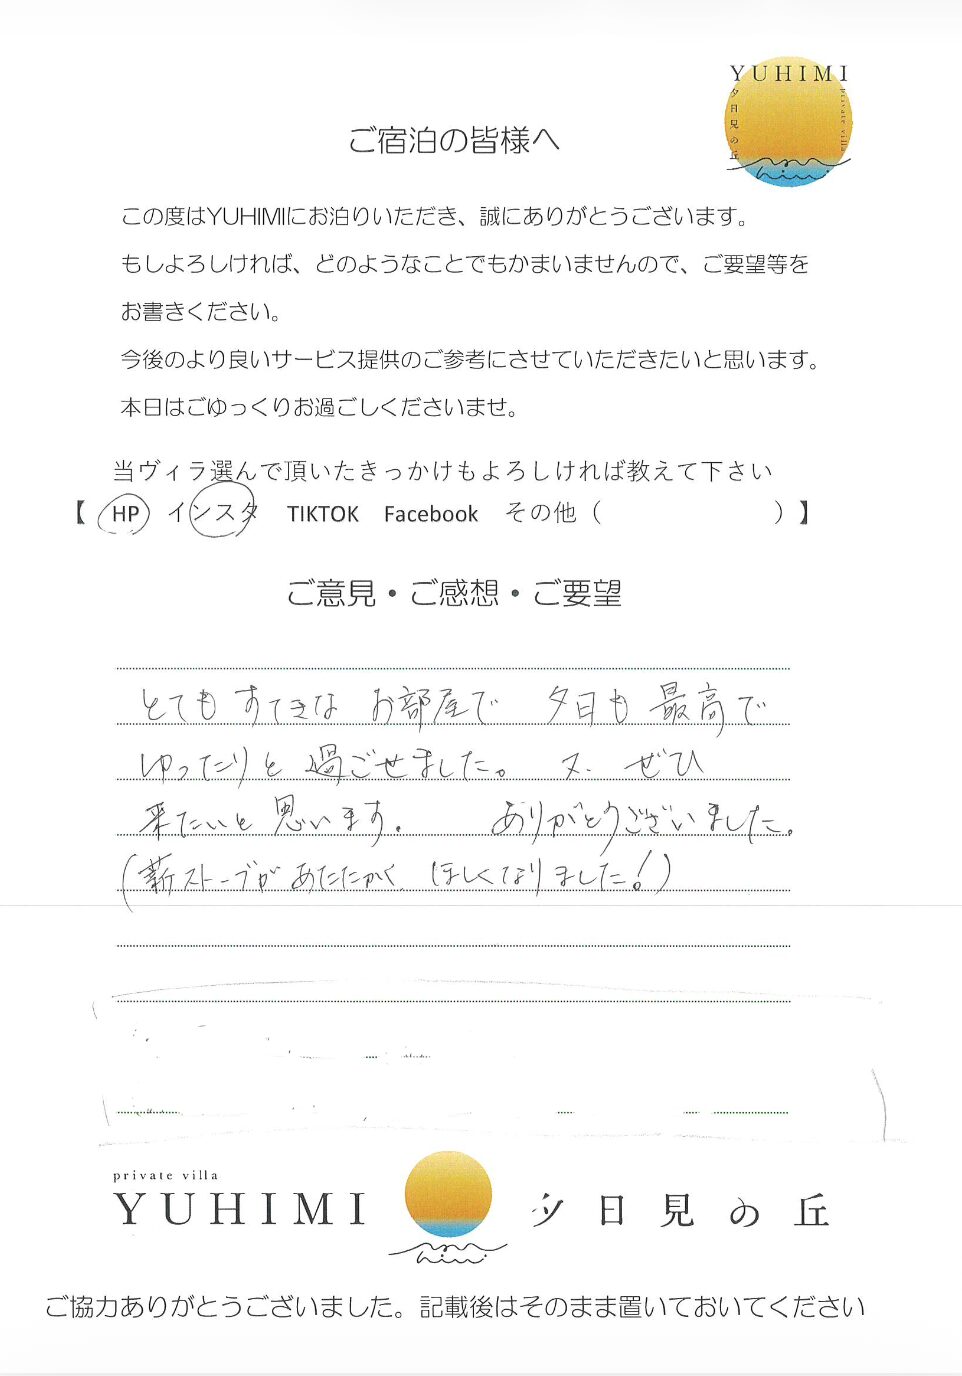 YUHIMI
夕日見の丘
private villa
ご宿泊の皆様へ
この度はYUHIMIにお泊りいただき、誠にありがとうございます。
もしよろしければ、どのようなことでもかまいませんので、ご要望等を
お書きください。
今後のより良いサービス提供のご参考にさせていただきたいと思います。
本日はごゆっくりお過ごしくださいませ。
当ヴィラ選んで頂いたきっかけもよろしければ教えて下さい
【 HP インスタ TIKTOK Facebook その他（ ）】
ご意見・ご感想・ご要望
とても すてきな お部屋で 夕日も 最高で
ゆったりと 過ごせました。 又、ぜひ
来たいと 思います. ありがとうございました。
(薪ストーブが あたたかく ほしくなりました!)
private villa
YUHIMI 夕日見の丘
ご協力ありがとうございました。記載後はそのまま置いておいてください